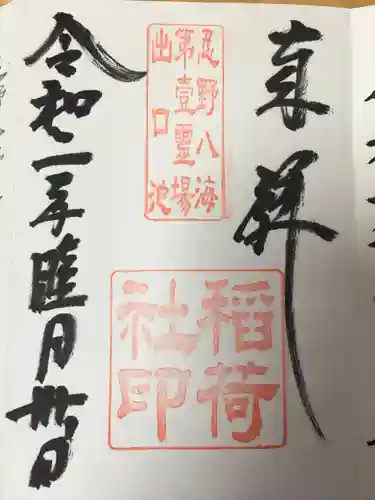 奉拝
忍野八海
第壹靈場
出口池
稲荷
社印
令和二年睦月卅日